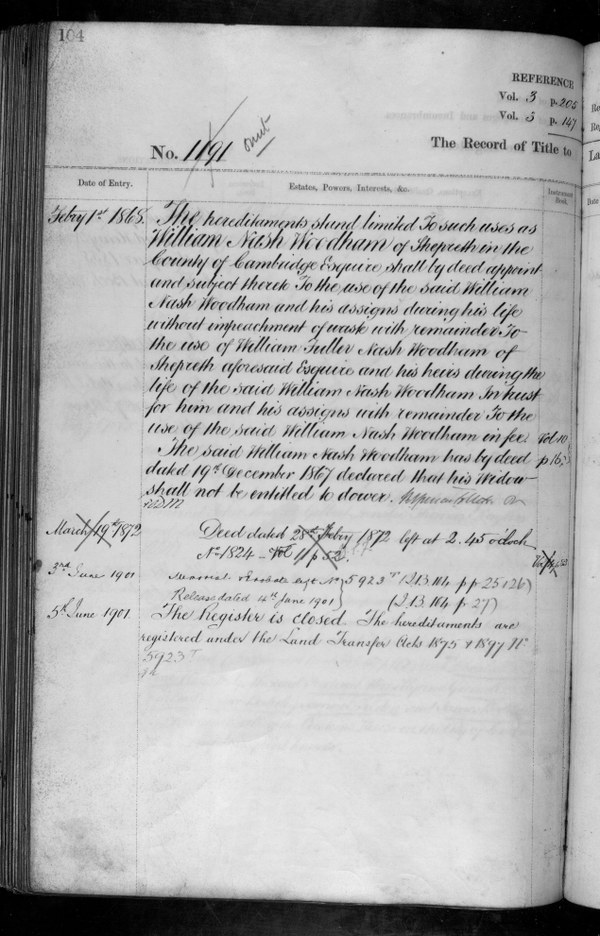 104
REFERENCE
Vol. 3 p. 205
Vol. 5 p. 147
The Record of Title to
No. 1191
Date of Entry.
Estates, Powers, Interests, &c.
Instrument Book.
Febry 1st 1868.
The hereditaments stand limited To such uses as
William Nash Woodham of Shepreth in the
County of Cambridge Esquire shall by deed appoint
and subject thereto To the use of the said William
Nash Woodham and his assigns during his life
without impeachment of waste with remainder To
the use of William Fuller Nash Woodham of
Shepreth aforesaid Esquire and his heirs during the
life of the said William Nash Woodham In trust
for him and his assigns with remainder To the
use of the said William Nash Woodham in fee.
Vol 10
The said William Nash Woodham has by deed
dated 19th December 1867 declared that his Widow
shall not be entitled to dower.
March 19th 1872
Deed dated 28th Febry 1872 left at 2.45 o'clock
No 1824 - Vol 11 p 52.
3rd June 1901
No 5923
Release dated 4th June 1901
5th June 1901
The Register is closed. The hereditaments are
registered under the Land Transfer Acts 1875 & 1897 No
5923